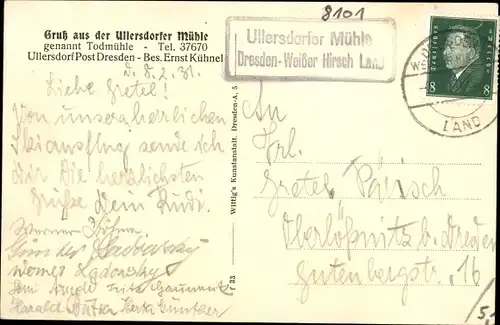 8101
Gruß aus der Ullersdorfer Mühle
genannt Todmühle - Tel. 37670
Ullersdorf Post Dresden - Bes. Ernst Kühnel
Ullersdorfer Mühle
Dresden-Weißer Hirsch Land
8 8
LAND
D. 8.2.31.
Liebe Gretel!
Von unserem herrlichen
sende ich
Dir die herzlichsten
Grüße Dein Rudi.
Werner Böhme
Günter
Werner
Harald Herta Günther
Wittig's Kunstanstalt, Dresden-A. 5
r 33
An
Frl.
Gretel
Oberlößnitz b. Dresden
Gutenbergstr. 16
5.-